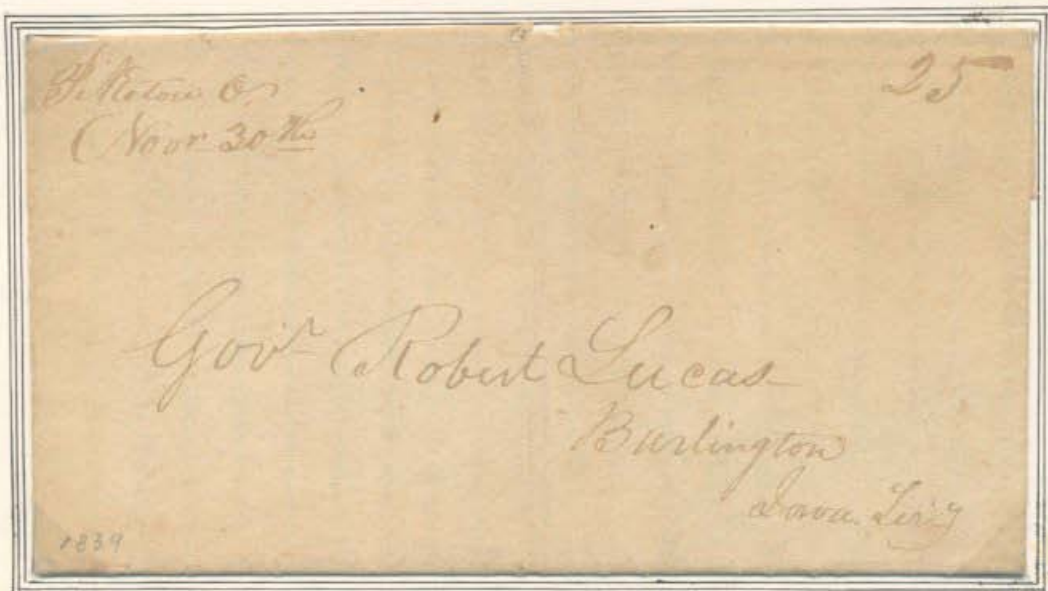 Piketon O.
Novr 30th
25
Govr Robert Lucas
Burlington
Iowa Terry
1839